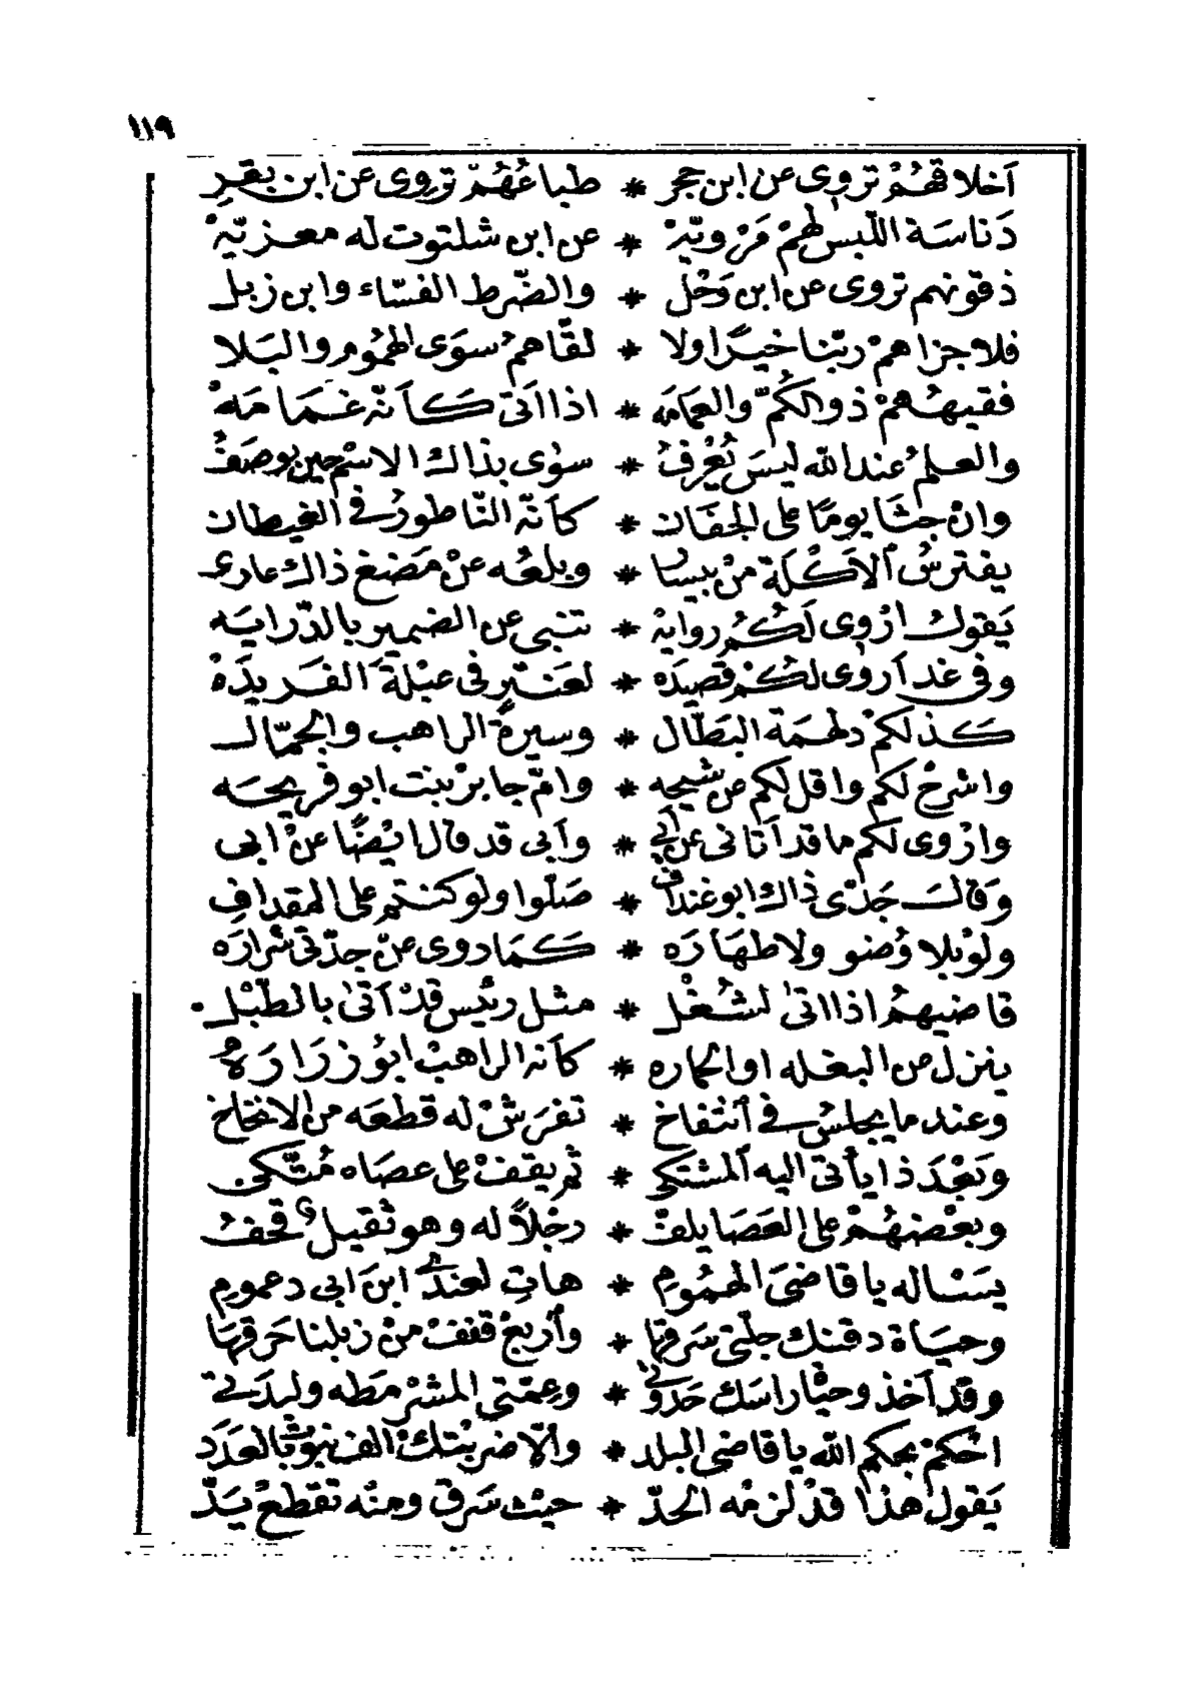 ١١٩
أخلاقهُمْ تروى عن ابن حجر * طباعُهُمْ تروى عن ابن بقرِ
دَناسَة اللبس لهمْ مَرْويّهْ * عن ابن شلتوت له معزيّهْ
ذقونهم تروى عن ابن وَحْل * والضّرط الفسّاء وابن زبل
فلا جزاهمْ ربّنا خيرًا ولا * لقّاهمُ سوَى الهمُوم والبَلا
فقيههمْ ذو الكُمّ والعمامَه * اذا اتى كَأنّه غمَامَهْ
والعلمُ عند الله ليسَ يُعْرفُ * سوٰى بذاك الاسْم حين يوصَفُ
وانْ جثَا يومًا على الجفان * كأنّه الناطورُ في الغيطان
يفترسُ الأكْلَة منْ بيسار * وبلعُه عنْ مَضغ ذاك عارى
يَقول ارْوى لَكُمُ روايهْ * تنبى عن الضمير بالدّرايَه
وفى غد أروى لكُمْ قصيدَه * لعَنترٍ فى عبْلةَ الفَريدَهْ
كَذلكمْ دلهمَة البَطّال * وسيرةَ الراهب والجمّال
واشرحْ لكم واقل لكم من شيحه * وامّ جابرْ بنت ابو فريحَه
وارْوى لكم ما قد أتانى عن أبى * وأبى قد قال ايْضًا عنْ ابى
وَقالَ جَدّى ذاك ابو غنداف * صَلّوا ولو كنتم على المقدافِ
ولوْ بلا وُضو ولا طهَارَه * كَمَا روى عنّ جدّتى شرارَه
قاضيهمُ اذا اتى لشُغْل * مثل رئيس قدْ أتىٰ بالطّبْل
ينزل من البغله او الحماره * كأنه الراهبْ ابُو زرَارَهْ
وعند ما يجلسْ فى أنتفاخ * تفرَشْ له قطعَه من الانخاخ
وبَعْدَ ذا يأتى اليه ألمشتكى * ثم يقفْ على عصَاه مُتّكى
وبعْضهُمْ على العَصَا يلفّ * رجْلاً له وهو ثقيلٌ قحفُ
يسَاله يا قاضىَ الهمُومِ * هاتِ لعندى ابنَ ابى دعموم
وحيَاة دقنك جلّتى سَرقها * وأربعْ قففْ منْ زبلنا حَرقها
وقد أخذ وحيْاة راسك حَدوتى * وعمّتى المشرْمَطه ولبدَتى
احْكمْ بحكم الله يا قاضى البلد * والاّ ضربْتك الف نبّوتْ بالعدَد
يَقول هذا قدْ لزمُه الحدّ * حيْث سَرق ومنْه تقطعْ يَدّ